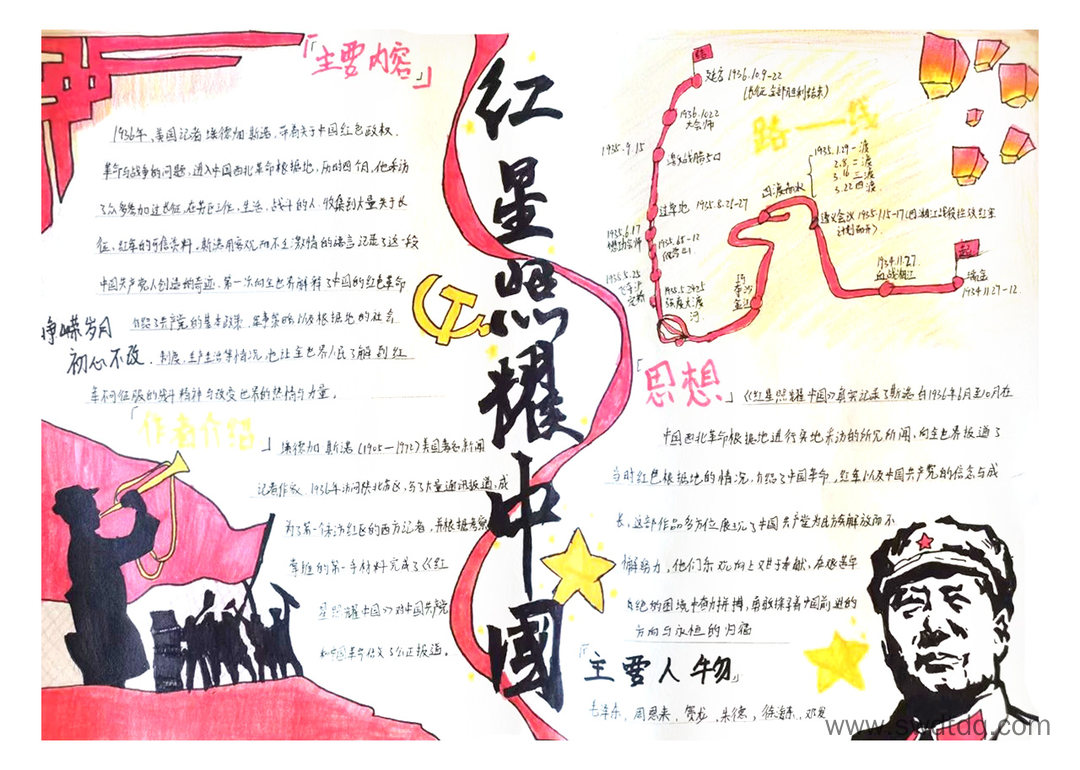 「主要内容」
1936年，美国记者埃德加·斯诺，带着关于中国红色政权、
革命与战争的问题，进入中国西北革命根据地，历时四个月，他采访
了众多参加过长征，在苏区工作、生活、战斗的人，收集到大量关于长
征、红军的可信资料。斯诺用客观而不乏激情的语言记录了这一段
中国共产党人创造的奇迹，第一次向全世界解释了中国的红色革命
介绍了共产党的基本政策、军事策略以及根据地的社会
制度、生产生活等情况，也让全世界人民了解到红
军不可征服的战斗精神与改变世界的热情与力量。
峥嵘岁月
初心不改
「作者介绍」
埃德加·斯诺（1905-1972）美国著名新闻
记者作家，1936年访问陕北苏区，写了大量通讯报道，成
为了第一个采访红区的西方记者，并根据考察
掌握的第一手材料完成了《红
星照耀中国》对中国共产党
和中国革命作了公正报道。
红星照耀中國
路——线
结
延安 1936.10.9-22
（长征全部胜利结束）
1936.1022
大会师
1935.9.15
激战腊子口
过草地 1935.8.21-27
1935.6.17
懋功会师
1935.5.25
飞夺泸
定桥
四渡赤水
1935.1.29一渡
2.8.二渡
3.16三渡
3.22四渡
遵义会议 1935.1.15-17
血战湘江
1934.11.27
起
瑞金
1934.11.27-12
「思想」
《红星照耀中国》真实记录了斯诺自1936年6月至10月在
中国西北革命根据地进行实地采访的所见所闻，向全世界报道了
当时红色根据地的情况，介绍了中国革命，红军以及中国共产党的信念与成
长，这部作品多方位展现了中国共产党为民族解放而不
懈努力，他们乐观向上又甘于奉献，在艰苦卓
绝的困境中奋力拼搏，勇敢探寻着中国前进的
方向与永恒的归宿
「主要人物」
毛泽东、周恩来、贺龙、朱德、徐海东、邓发
www.swdtdq.com